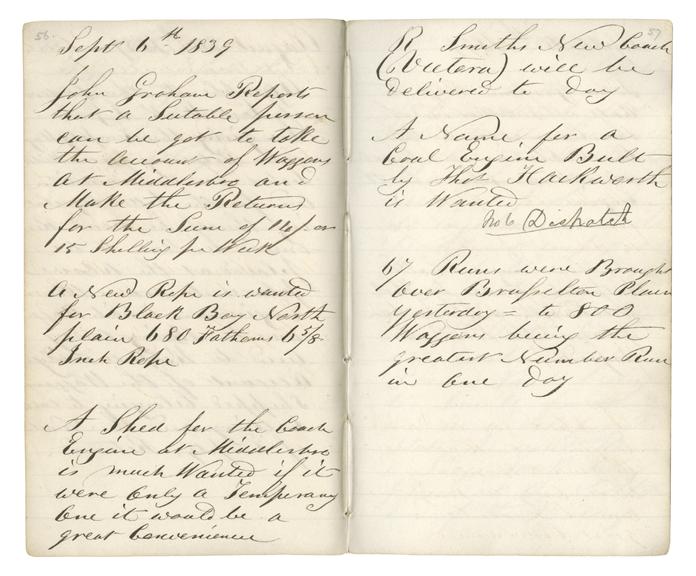 56.
Sept 6th 1839
John Graham Reports
that a Sutable person
can be got to take
the account of Waggons
at Middlesbro and
Make the Returns
for the Sum of 14/- or
15 Shilling pr Week
A New Rope is wanted
for Black Boy North
plain 680 Fathoms 6 5/8
Inch Rope
A Shed for the Coach
Engine at Middlesbro
is much Wanted if it
were only a Temperary
one it would be a
great Convenience
57
R Smiths New Coach
(Victera) will be
delivered to day
A Name for a
Coal Engine Built
by Thos Hackworth
is Wanted
No 6 Dispatch
67 Runs were Brought
over Brusselton Plain
yesterday = to 800
Waggons being the
greatest Number Run
in one day